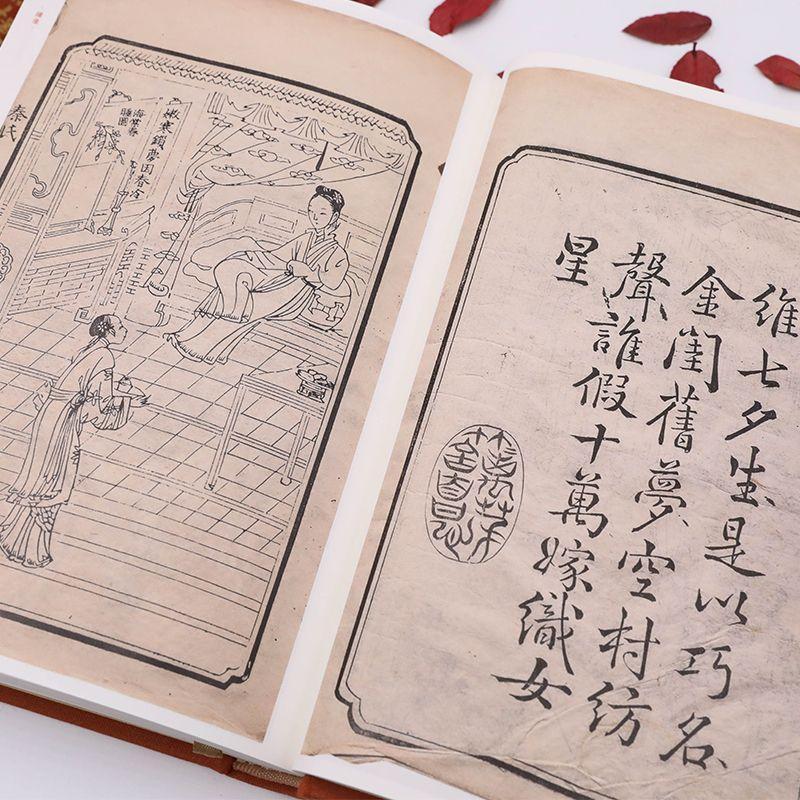 維七夕生是以巧名
金閨舊夢空村紡
聲誰假十萬嫁織女
星
嫩寒鎖夢因春冷
海棠春
睡圖
秦氏